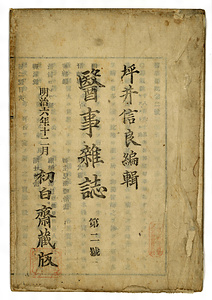 坪井信良編輯
醫事雜誌 第二號
明治六年十二月 初白齋藏版